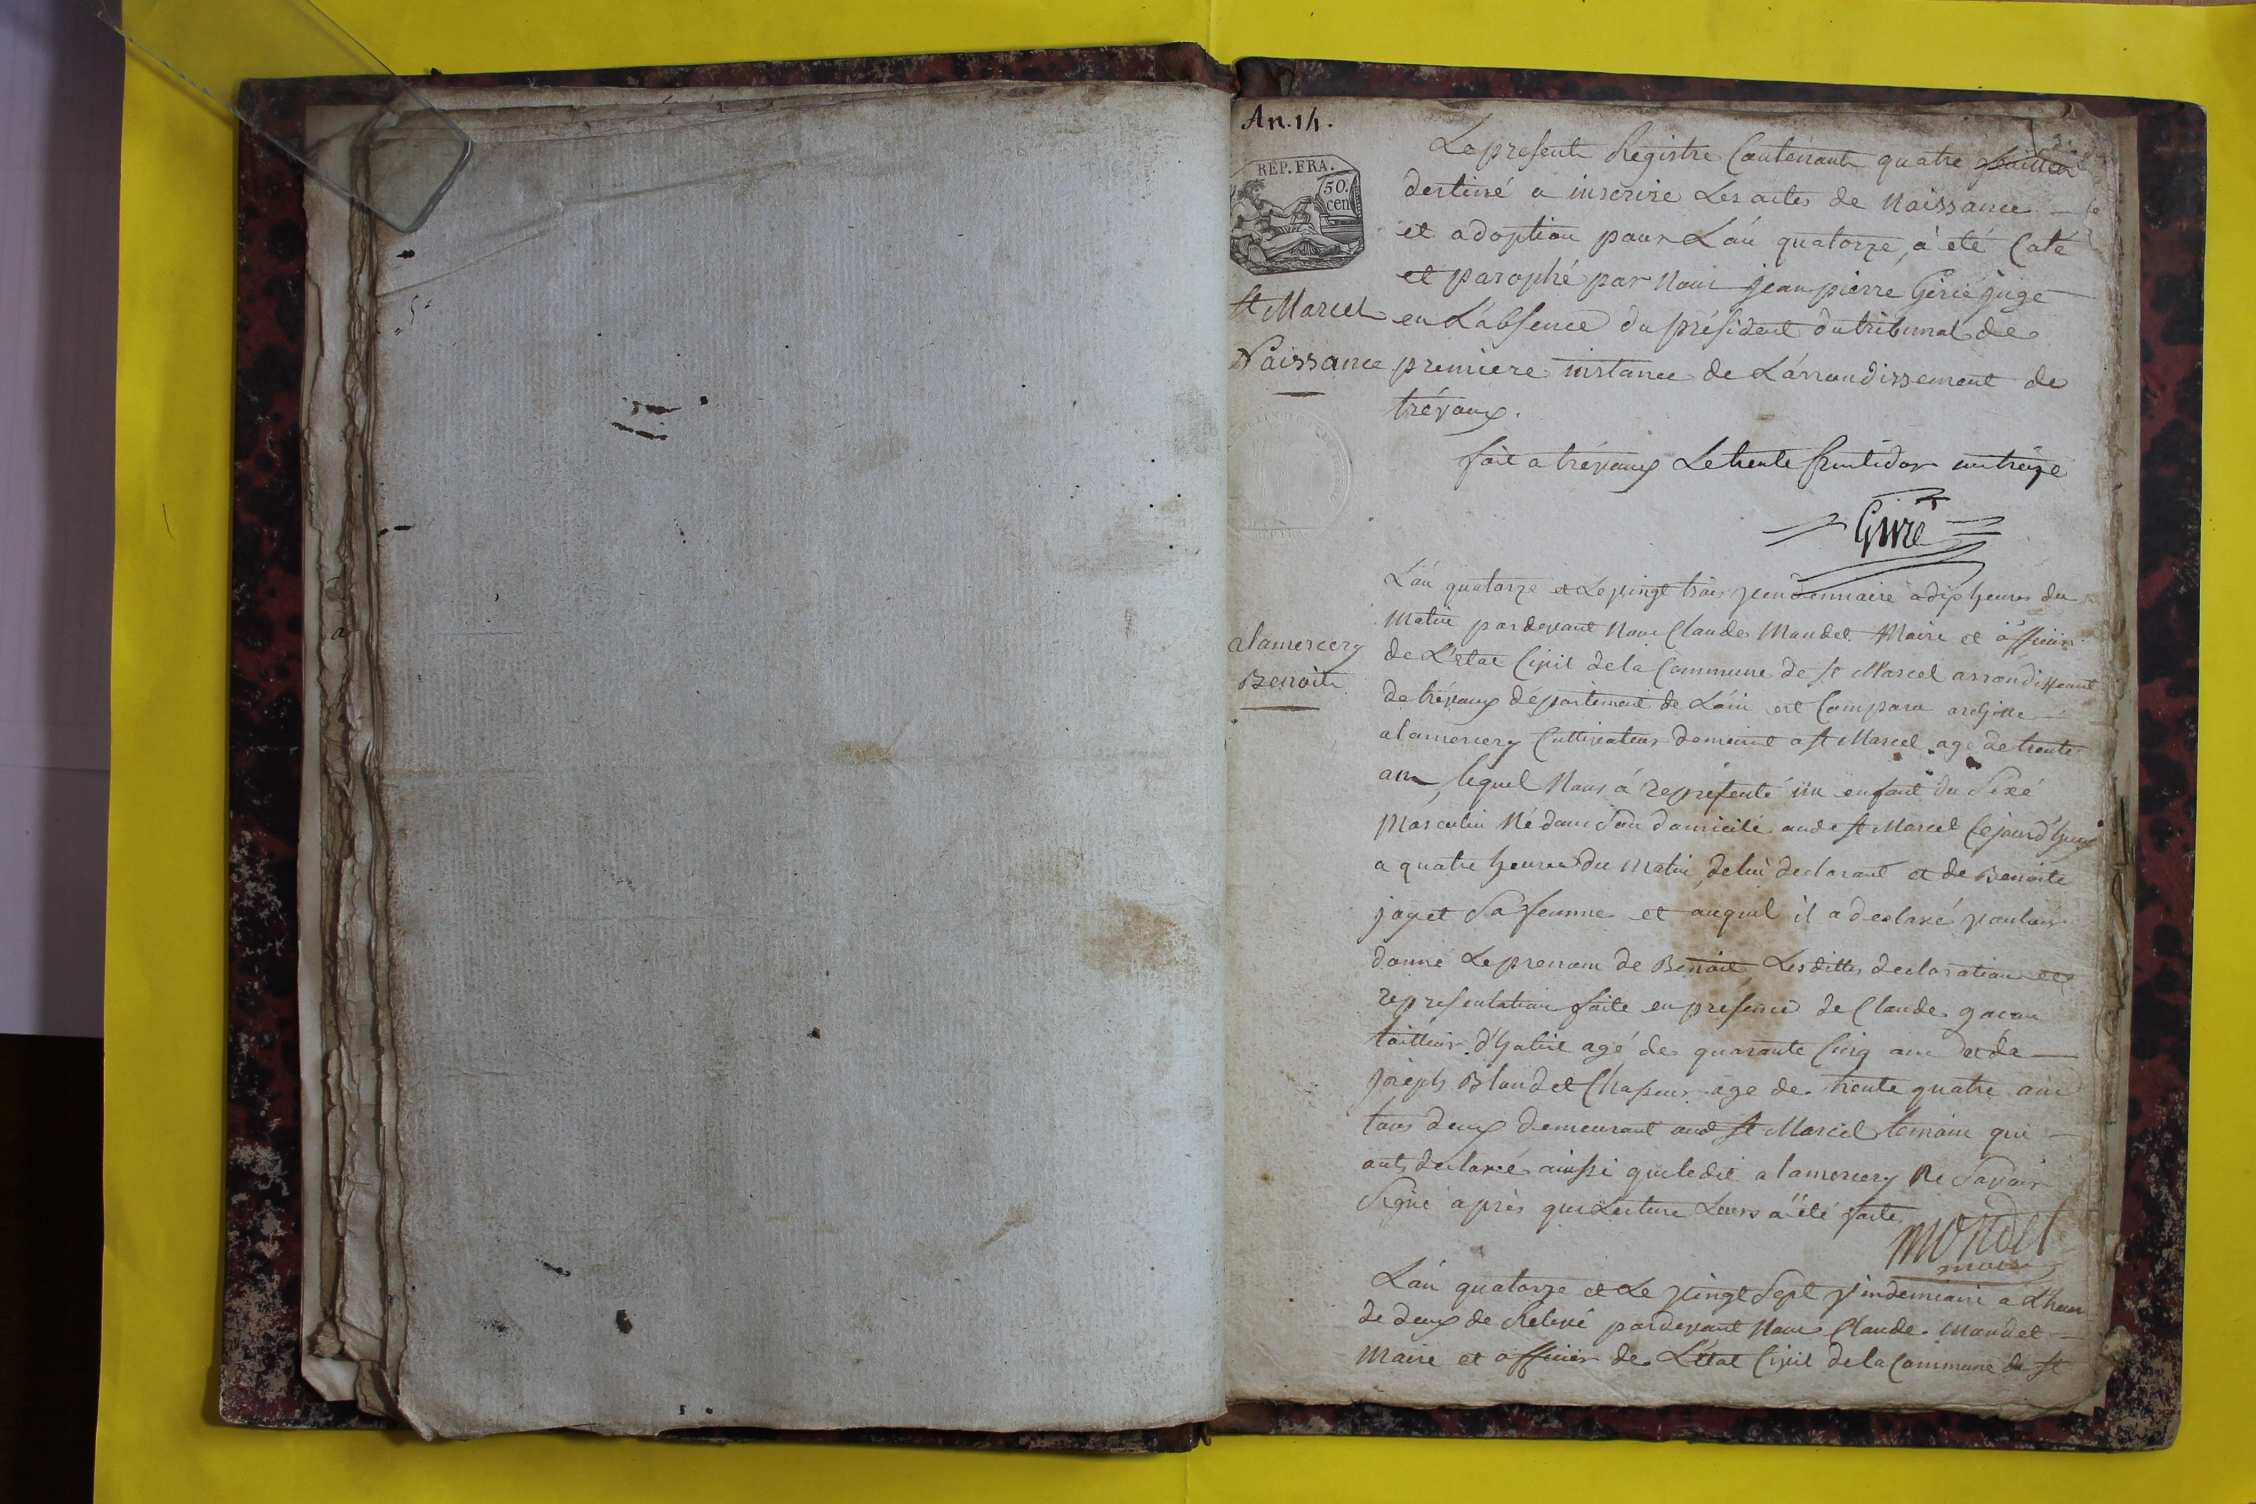 An. 14.
REP. FRA.
50.
cen
Le present Registre Contenant quatre feuilles
destiné a inscrire Les actes de Naissance
et adoption pour L'an quatorze, à été Coté
et parophé par Nous jean pierre Girié juge
St Marcel
en L'absence du président du tribunal de
Naissance
premiere instance de L'arrondissement de
trévoux.
fait a trévoux Le trente fructidor an treize
L'an quatorze et Le vingt trois vendemiaire à dix heures du
Matin pardevant Nous Claude Mondel Maire et officier
alamercery
de L'etat Civil de la Commune de St Marcel arrondissement
Benoite
de trévoux département de L'ain est Comparu
alamercery Cultivateur demeurt a St Marcel agé de trente
ans, lequel Nous à représenté un enfant du Sexe
Masculin Né dans Son domicile aud. St Marcel Cejourd'huy
a quatre heures du Matin, de lui declarant et de Benoite
jayet Sa femme et auquel il a declaré vouloir
donné Le prenom de Benoit Les dittes declaration et
representation faite en présence de Claude gacon
tailleur d'habit agé de quarante Cinq ans et de
joseph Blondel Chasseur age de trente quatre ans
tous deux demeurant aud St Marcel temoins qui
onts declaré ainssi que ledit alamercery Ne Savoir
Signé après que Lecture Leurs à été faite
mondel
maire
L'an quatorze et Le vingt Sept vindemiaire a L'heure
de deux de Relevé pardevant Nous Claude Mondel
Maire et officier de L'état Civil de la Commune de St